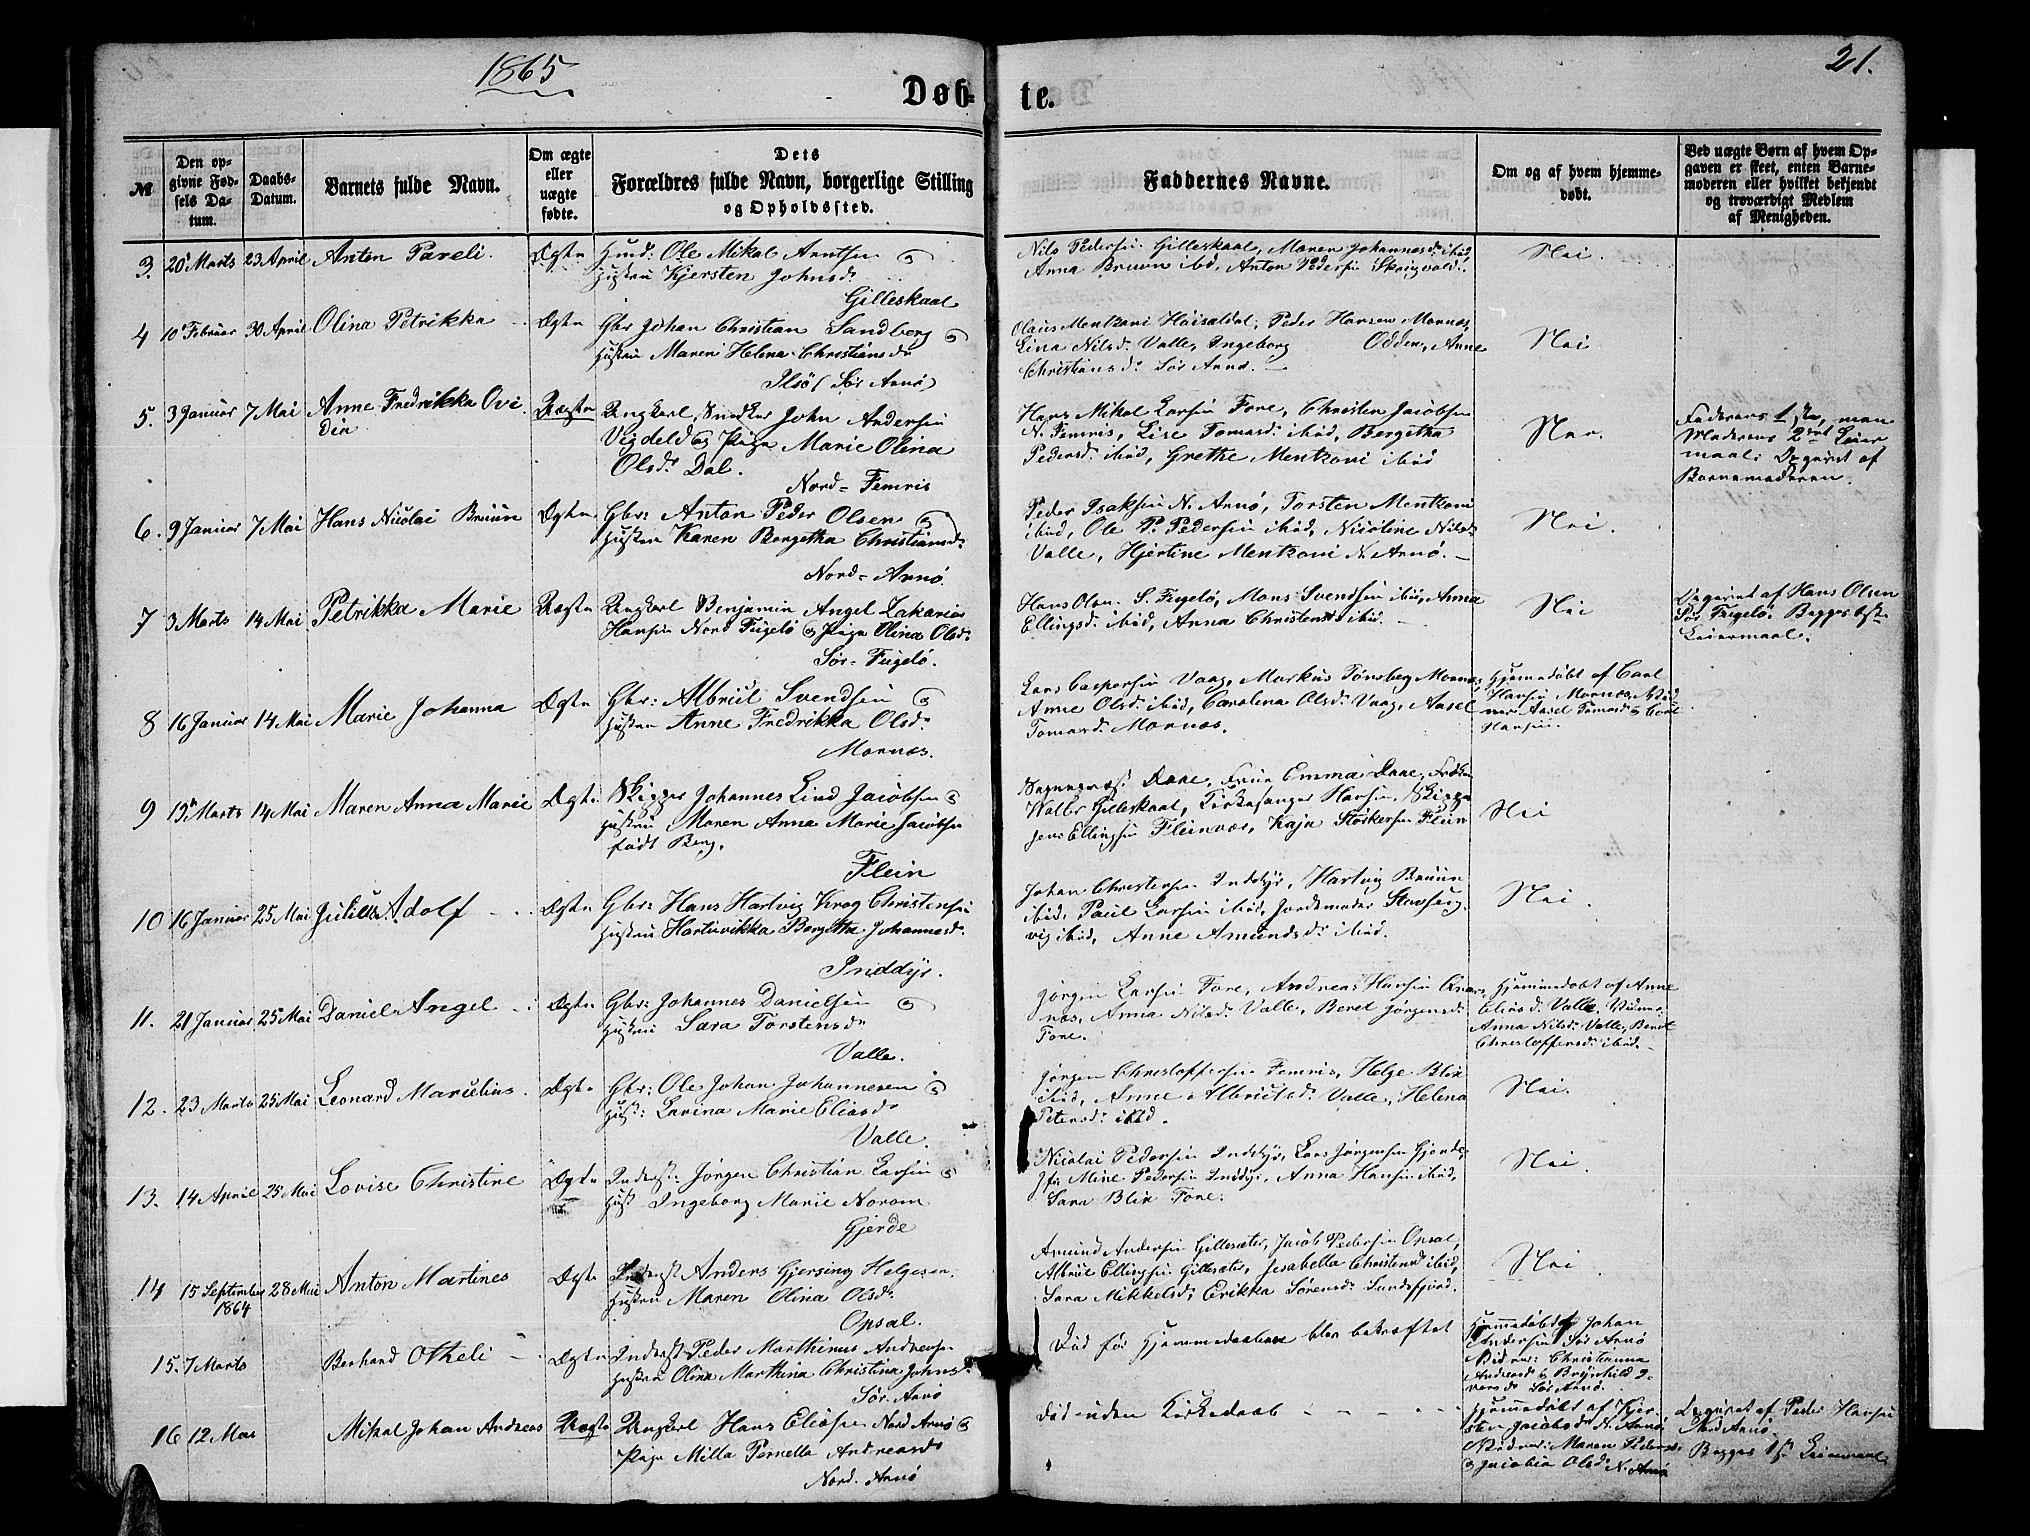 1865
21.
Døb-
te.
№
Den op-
givne Fød-
sels Da-
tum.
Daabs-
Datum.
Barnets fulde Navn.
Om ægte
eller
uægte
fødte.
Dets
Forældres fulde Navn, borgerlige Stilling
og Opholdssted.
Faddernes Navne.
Om og af hvem hjemme-
døbt.
Ved uægte Børn af hvem Op-
gaven er skeet, enten Barne-
moderen eller hvilket bekjendt
og troværdigt Medlem
af Menigheden.
3. 20 Marts 23 April Anton Pareli. Ægte Huusm: Ole Mikal Arntsen og
Hustru Kjersten Johnsd.
Gilleskaal
Nils Pedersen Gilleskaal, Maren Johannesd. ibid,
Anna Bruun ibd, Anton Pedersen
Nei.
4 10 Februar 30 April Olina Petrikka Ægte Gbr Johan Christian Sandberg og
Hustru Maren Helena Christiansd.
Sør Arnø
Olaus Mentzoni Høisældal, Peder Hansen Mornæs,
Lina Nilsd. Valle, Ingeborg Odden, Anne
Christiansd. Sør Arnø.
Nei
5. 3 Januar 7 Mai Anne Fredrikka Ovi
dia
Uægte Ungkarl, Snedker John Andersen
Vigdel og Pige Marie Olina
Olsd. Dal.
Nord-Femris
Hans Mikal Larsen Fore, Christen Jacobsen
N. Femris, Lise Tomasd. ibid, Bergetha
Pedersd. ibid, Grethe Mentzoni ibid
Nei.
Faderens 1ste, men
Moderens 2det Leier
maal. Opgivet af
Barnemoderen.
6. 9 Januar 7 Mai Hans Nicolai Bruun Ægte Gbr: Anton Peder Olsen og
Hustru Karen Bergetha Christiansd.
Nord-Arnø.
Peder Isaksen N. Arnø, Torsten Mentzoni
ibid, Ole P. Pedersen ibid, Nicoline Nilsd.
Valle, Hjertine Mentzoni N. Arnø.
Nei.
7 3 Marts 14 Mai Petrikka Marie Uægte Ungkarl Benjamin Angel Zakarias
Hansen Nord Fugelø og Pige Olina Olsd.
Sør-Fugelø.
Hans Olsen S. Fugelø, Mons Svendsen ibid, Anna
Ellingsd. ibid, Anna Christensd. ibid.
Nei
Opgivet af Hans Olsen
Sør Fugelø. Begges 1ste
Leiermaal.
8 16 Januar 14 Mai Marie Johanna Ægte Gbr: Albriit Svendsen og
Hustru Anne Fredrikka Olsd.
Mornæs.
Lars Caspersen Vaag, Markus Tønsberg Mornæs,
Anne Olsd. ibid, Carolina Olsd. Vaag, Aasel
Tomasd. Mornæs.
Hjemmedøbt af Carl
Hansen Mornæs, Vid
ner Aasel Tomasd. og Carl
Hansen.
9 19 Marts 14 Mai Maren Anna Marie Ægte Skipper Johannes Lind Jacobsen og
Hustru Maren Anna Marie Jacobsen
født Berg.
Flein
Sognepræst Daae, Frue Emma Daae, Frøken
Gilleskaal, Kirkesanger Hansen, Skipper
Jens Ellingsen Fleinvær, Kaja Størkersen Flein
Nei
10 16 Januar 25 Mai Julius Adolf Ægte Gbr: Hans Hartvig Krog Christensen
Hustru Hartvikka Bergetha Johannesd.
Inddyr.
Johan Christensen Inddyr, Hartvig Bruun
ibid, Paul Larsen ibid, Jordemoder
vig ibid, Anne Amundsd. ibid.
Nei.
11. 21 Januar 25 Mai Daniel Angel Ægte Gbr: Johannes Danielsen og
Hustru Sara Torstensd.
Valle.
Jørgen Larsen Fore, Andreas Hansen
næs, Anna Nilsd. Valle, Beret Jørgensd.
Fore.
Hjemmedøbt af Anne
Eliasd. Valle, Vidner
Anna Nilsd. Valle, Beret
Christoffersd. ibid.
12. 23 Marts 25 Mai Leonard Marselius. Ægte Gbr: Ole Johan Johannesen og
Hust: Lavina Marie Eliasd.
Valle.
Jørgen Christoffersen Femris, Helge Blix
ibid, Anne Albriitsd. Valle, Helena
Petersd. ibid.
Nei.
13. 14 April 25 Mai Lovise Christine Ægte Inderst: Jørgen Christian Larsen og
Hust Ingeborg Marie Norom
Gjerde
Nicolai Pedersen Inddyr, Lars Jørgensen Gjerde,
Mine Pedersen Inddyr, Anna Hansen ibid,
Sara Blix Fore.
Nei.
14 15 September 28 Mai Anton Martines
1864
Ægte Inderst Anders Gjersing Helgesen
Hustru Maren Olina Olsd.
Opsal.
Amund Andersen Gillesæter, Jacob Pedersen Opsal,
Albriit Ellingsen Gillesæter, Jesabella Christensd ibid,
Sara Mikkelsd, Erikka Sørensd. Sundsfjord.
Nei
15. 7 Marts Berhard Otheli Ægte Inderst Peder Marthinus Andersen
Hustru Olina Marthina Christina Johnsd.
Sør Arnø
Død før Hjemmedaaben blev bekræftet
Hjemmedøbt af Johan
Andersen Sør Arnø
Vidner: Christianna
Andersd. og Brynhild I
versd. Sør Arnø.
16 12 Mai Mikal Johan Andreas Uægte Ungkarl Hans Eliasen Nord Arnø og
Pige Milla Pernella Andreasd.
Nord. Arnø
Død uden Kirkedaab
Hjemmedøbt af Kjer
sten Jacobsd. N. Arnø
Vidner: Maren Pedersd.
og Jacobia Olsd. N. Arnø
Opgivet af Peder Hansen
Nord Arnø.
Begges 1ste Leiermaal